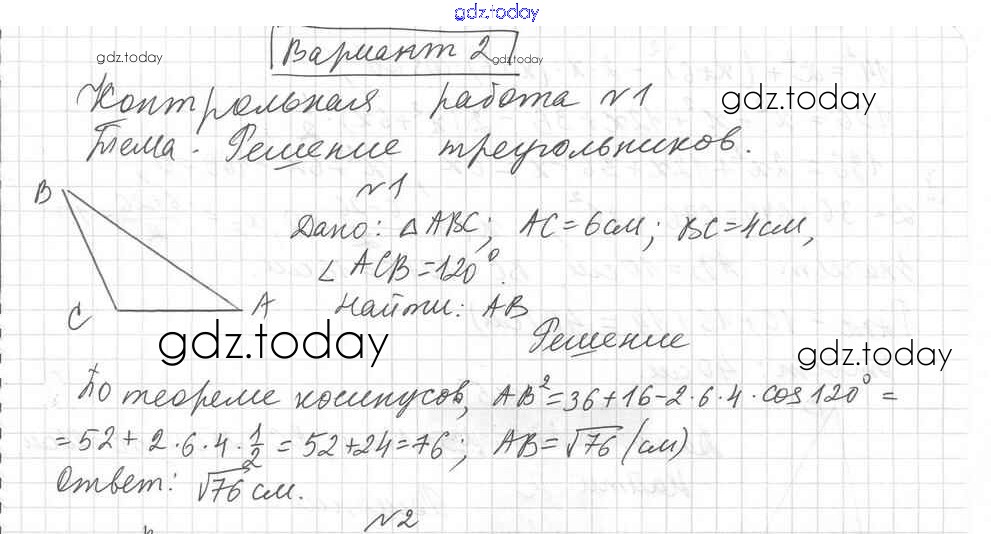 gdz.today
Вариант 2
gdz.today gdz.today
Контрольная работа №1 gdz.today
Тема. Решение треугольников.
№1
B
Дано: △ABC; AC=6см; BC=4см,
∠ACB=120°.
C A Найти: AB
gdz.today Решение gdz.today
По теореме косинусов, AB²=36+16-2·6·4·cos120°=
=52+2·6·4·1/2=52+24=76; AB=√76 (см)
Ответ: √76 см.
№2